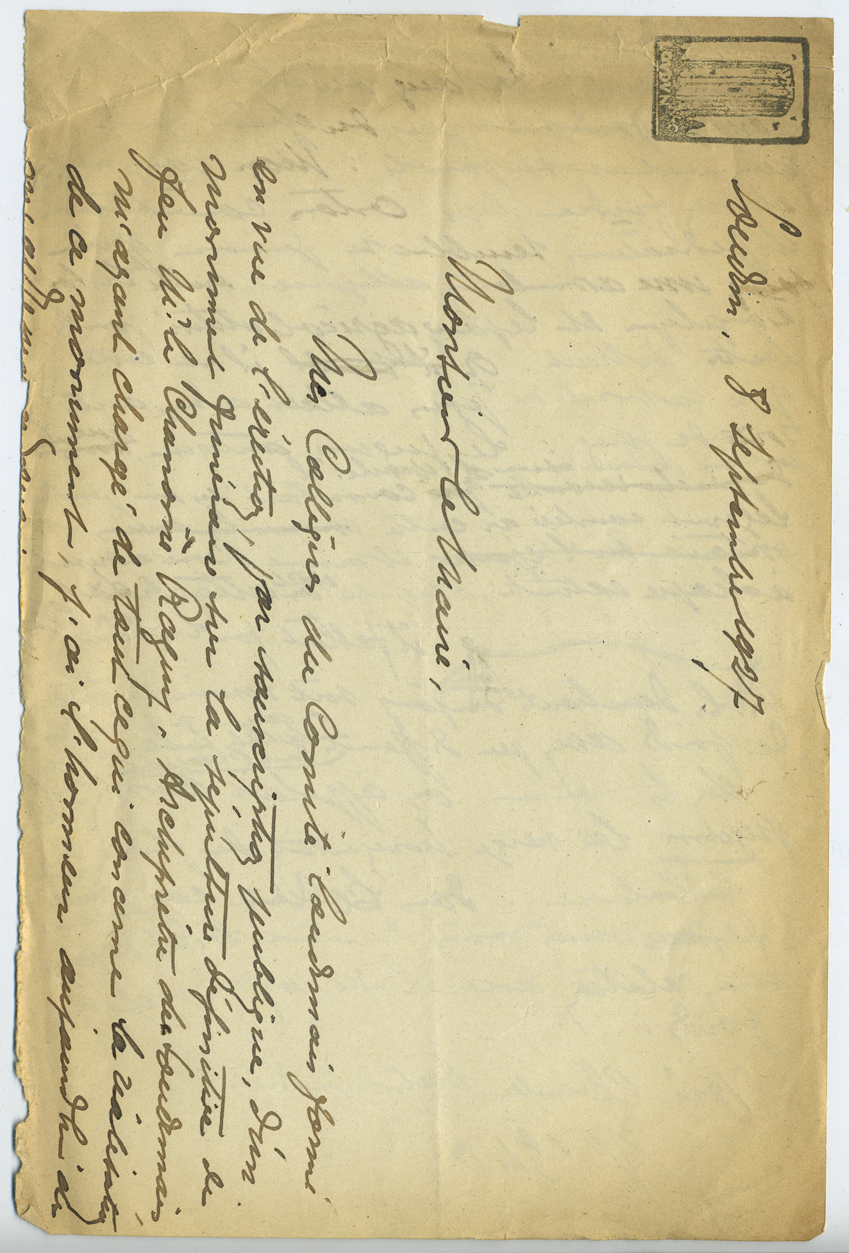 Loudun, 8 Septembre 1937
Monsieur le Maire,
Mes Collègues du Comité Loudunais formé
en vue de l'érection, par souscription publique, d'un
monument funéraire sur la sépulture définitive de
feu Mr le Chanoine Raguy, Archiprêtre du Loudunais,
m'ayant chargé de tout ce qui concerne la réalisation
de ce monument, j'ai l'honneur aujourd'hui de